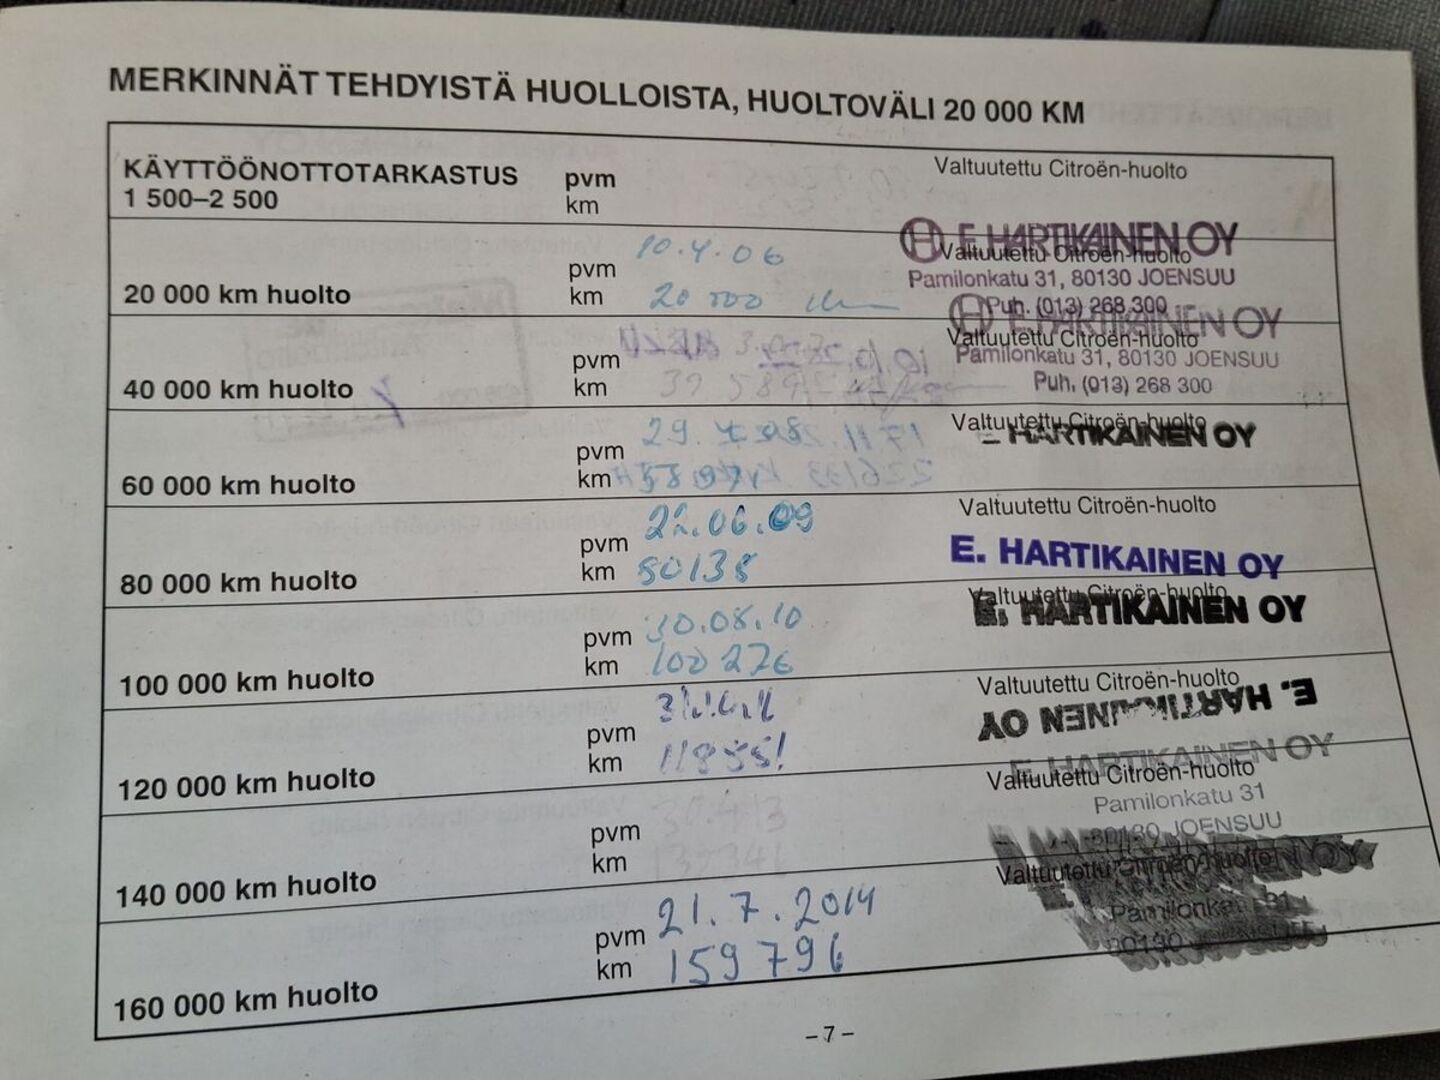 MERKINNÄT TEHDYISTÄ HUOLLOISTA, HUOLTOVÄLI 20 000 KM
KÄYTTÖÖNOTTOTARKASTUS
1 500–2 500
pvm
km
Valtuutettu Citroën-huolto
E. HARTIKAINEN OY
Pamilonkatu 31, 80130 JOENSUU
Puh. (013) 268 300
20 000 km huolto
pvm 10.4.06
km 20 000 km
Valtuutettu Citroën-huolto
E. HARTIKAINEN OY
Pamilonkatu 31, 80130 JOENSUU
Puh. (013) 268 300
40 000 km huolto
pvm
km 39 589
Valtuutettu Citroën-huolto
HARTIKAINEN OY
60 000 km huolto
pvm 29.
km
Valtuutettu Citroën-huolto
E. HARTIKAINEN OY
80 000 km huolto
pvm 22.06.09
km 80138
Valtuutettu Citroën-huolto
E. HARTIKAINEN OY
100 000 km huolto
pvm 30.08.10
km 100 276
Valtuutettu Citroën-huolto
E. HARTIKAINEN OY
120 000 km huolto
pvm
km 118551
Valtuutettu Citroën-huolto
E. HARTIKAINEN OY
Pamilonkatu 31
80130 JOENSUU
140 000 km huolto
pvm 30.4.13
km 137341
Valtuutettu Citroën-huolto
Valtuutettu Citroën-huolto
Pamilonkatu 31
80130
160 000 km huolto
pvm 21.7.2014
km 159 796
– 7 –